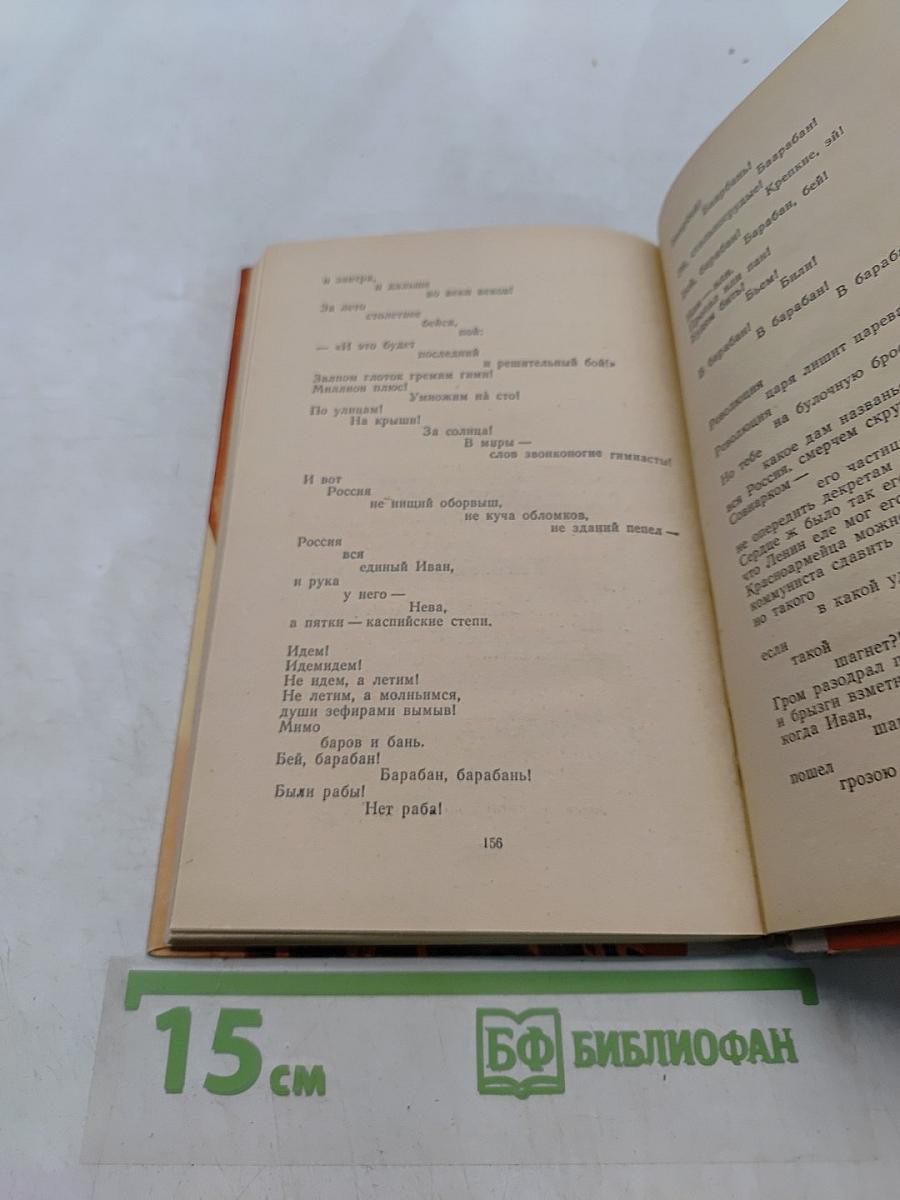 и завтра,
и дальше
во веки веков!
За лето
столетнее
бейся,
пой:
— «И это будет
последний
и решительный бой!»
Залпом глоток гремим гимн!
Миллион плюс!
Умножим на сто!
По улицам!
На крыши!
За солнца!
В миры —
слов звонконогие гимнасты!
И вот
Россия
не нищий оборвыш,
не куча обломков,
не зданий пепел —
Россия
вся
единый Иван,
и рука
у него —
Нева,
а пятки — каспийские степи.
Идем!
Идемидем!
Не идем, а летим!
Не летим, а молньимся,
души зефирами вымыв!
Мимо
баров и бань.
Бей, барабан!
Барабан, барабань!
Были рабы!
Нет раба!
156
Баарбань!
Баарабан!
Эй, стальногрудые!
Крепкие, эй!
Бей, барабан!
Барабан, бей!
Или — или.
Пропал или пан!
Будем бить!
Бьем!
Били!
В барабан!
В барабан!
В бараба
Революция
царя лишит царева
Революция
на булочную бро
Но тебе
какое дам названье
вся Россия, смерчем скру
Совнарком —
его частиц
не опередить декретам
Сердце ж было так ег
что Ленин еле мог его
Красноармейца можно
коммуниста сдавить
но такого
в какой у
если
такой
шагнет?!
Гром разодрал п
и брызги взметн
когда Иван,
ша
пошел
грозою
15 см
БФ БИБЛИОФАН